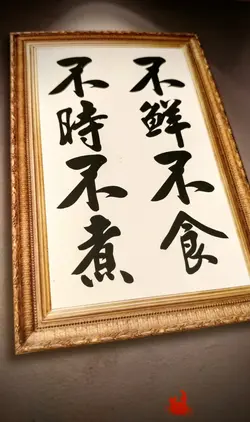 不鲜不食
不時不煮